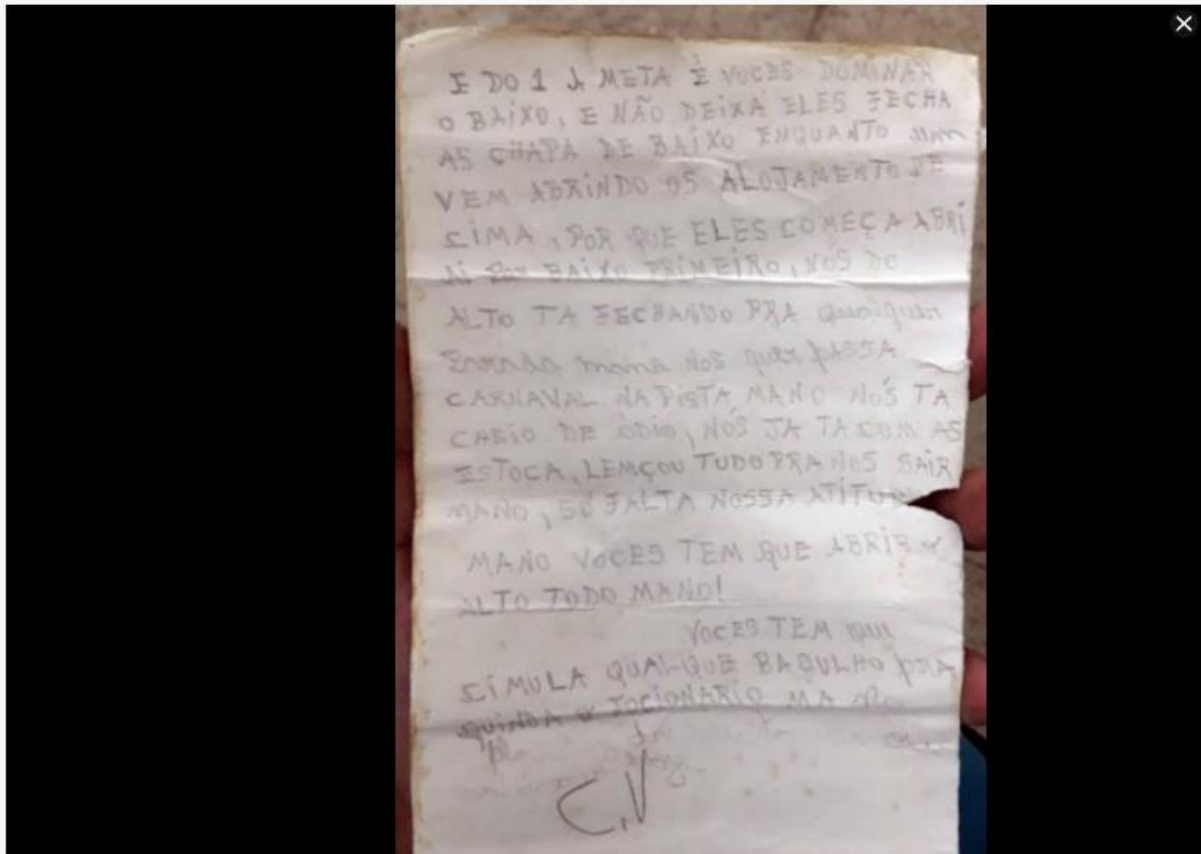 E DO 1 A META É VOCES DOMINAR
O BAIXO, E NÃO DEIXA ELES FECHA
AS CHAPA DE BAIXO ENQUANTO
VEM ABRINDO OS ALOJAMENTO DE
CIMA, POR QUE ELES COMEÇA ABRI
AI BAIXO PRIMEIRO, NOS DO
ALTO TA FECHANDO PRA qualquer
mano nos quer passa
CARNAVAL NA PISTA, MANO NÓS TA
CHEIO DE ODIO, NÓS JA TA COM AS
ESTOCA, LEMÇOU TUDO PRA NOS SAIR
MANO, SÓ FALTA NOSSA
MANO VOCES TEM QUE ABRIR o
ALTO TODO MANO!
VOCES TEM
CIMULA QUALQUE BAGULHO pra
o
C,V